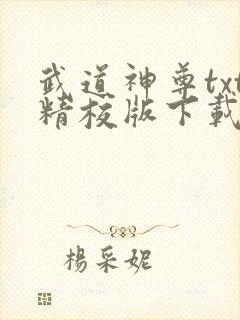 武道神尊txt
精校版下載
楊采妮